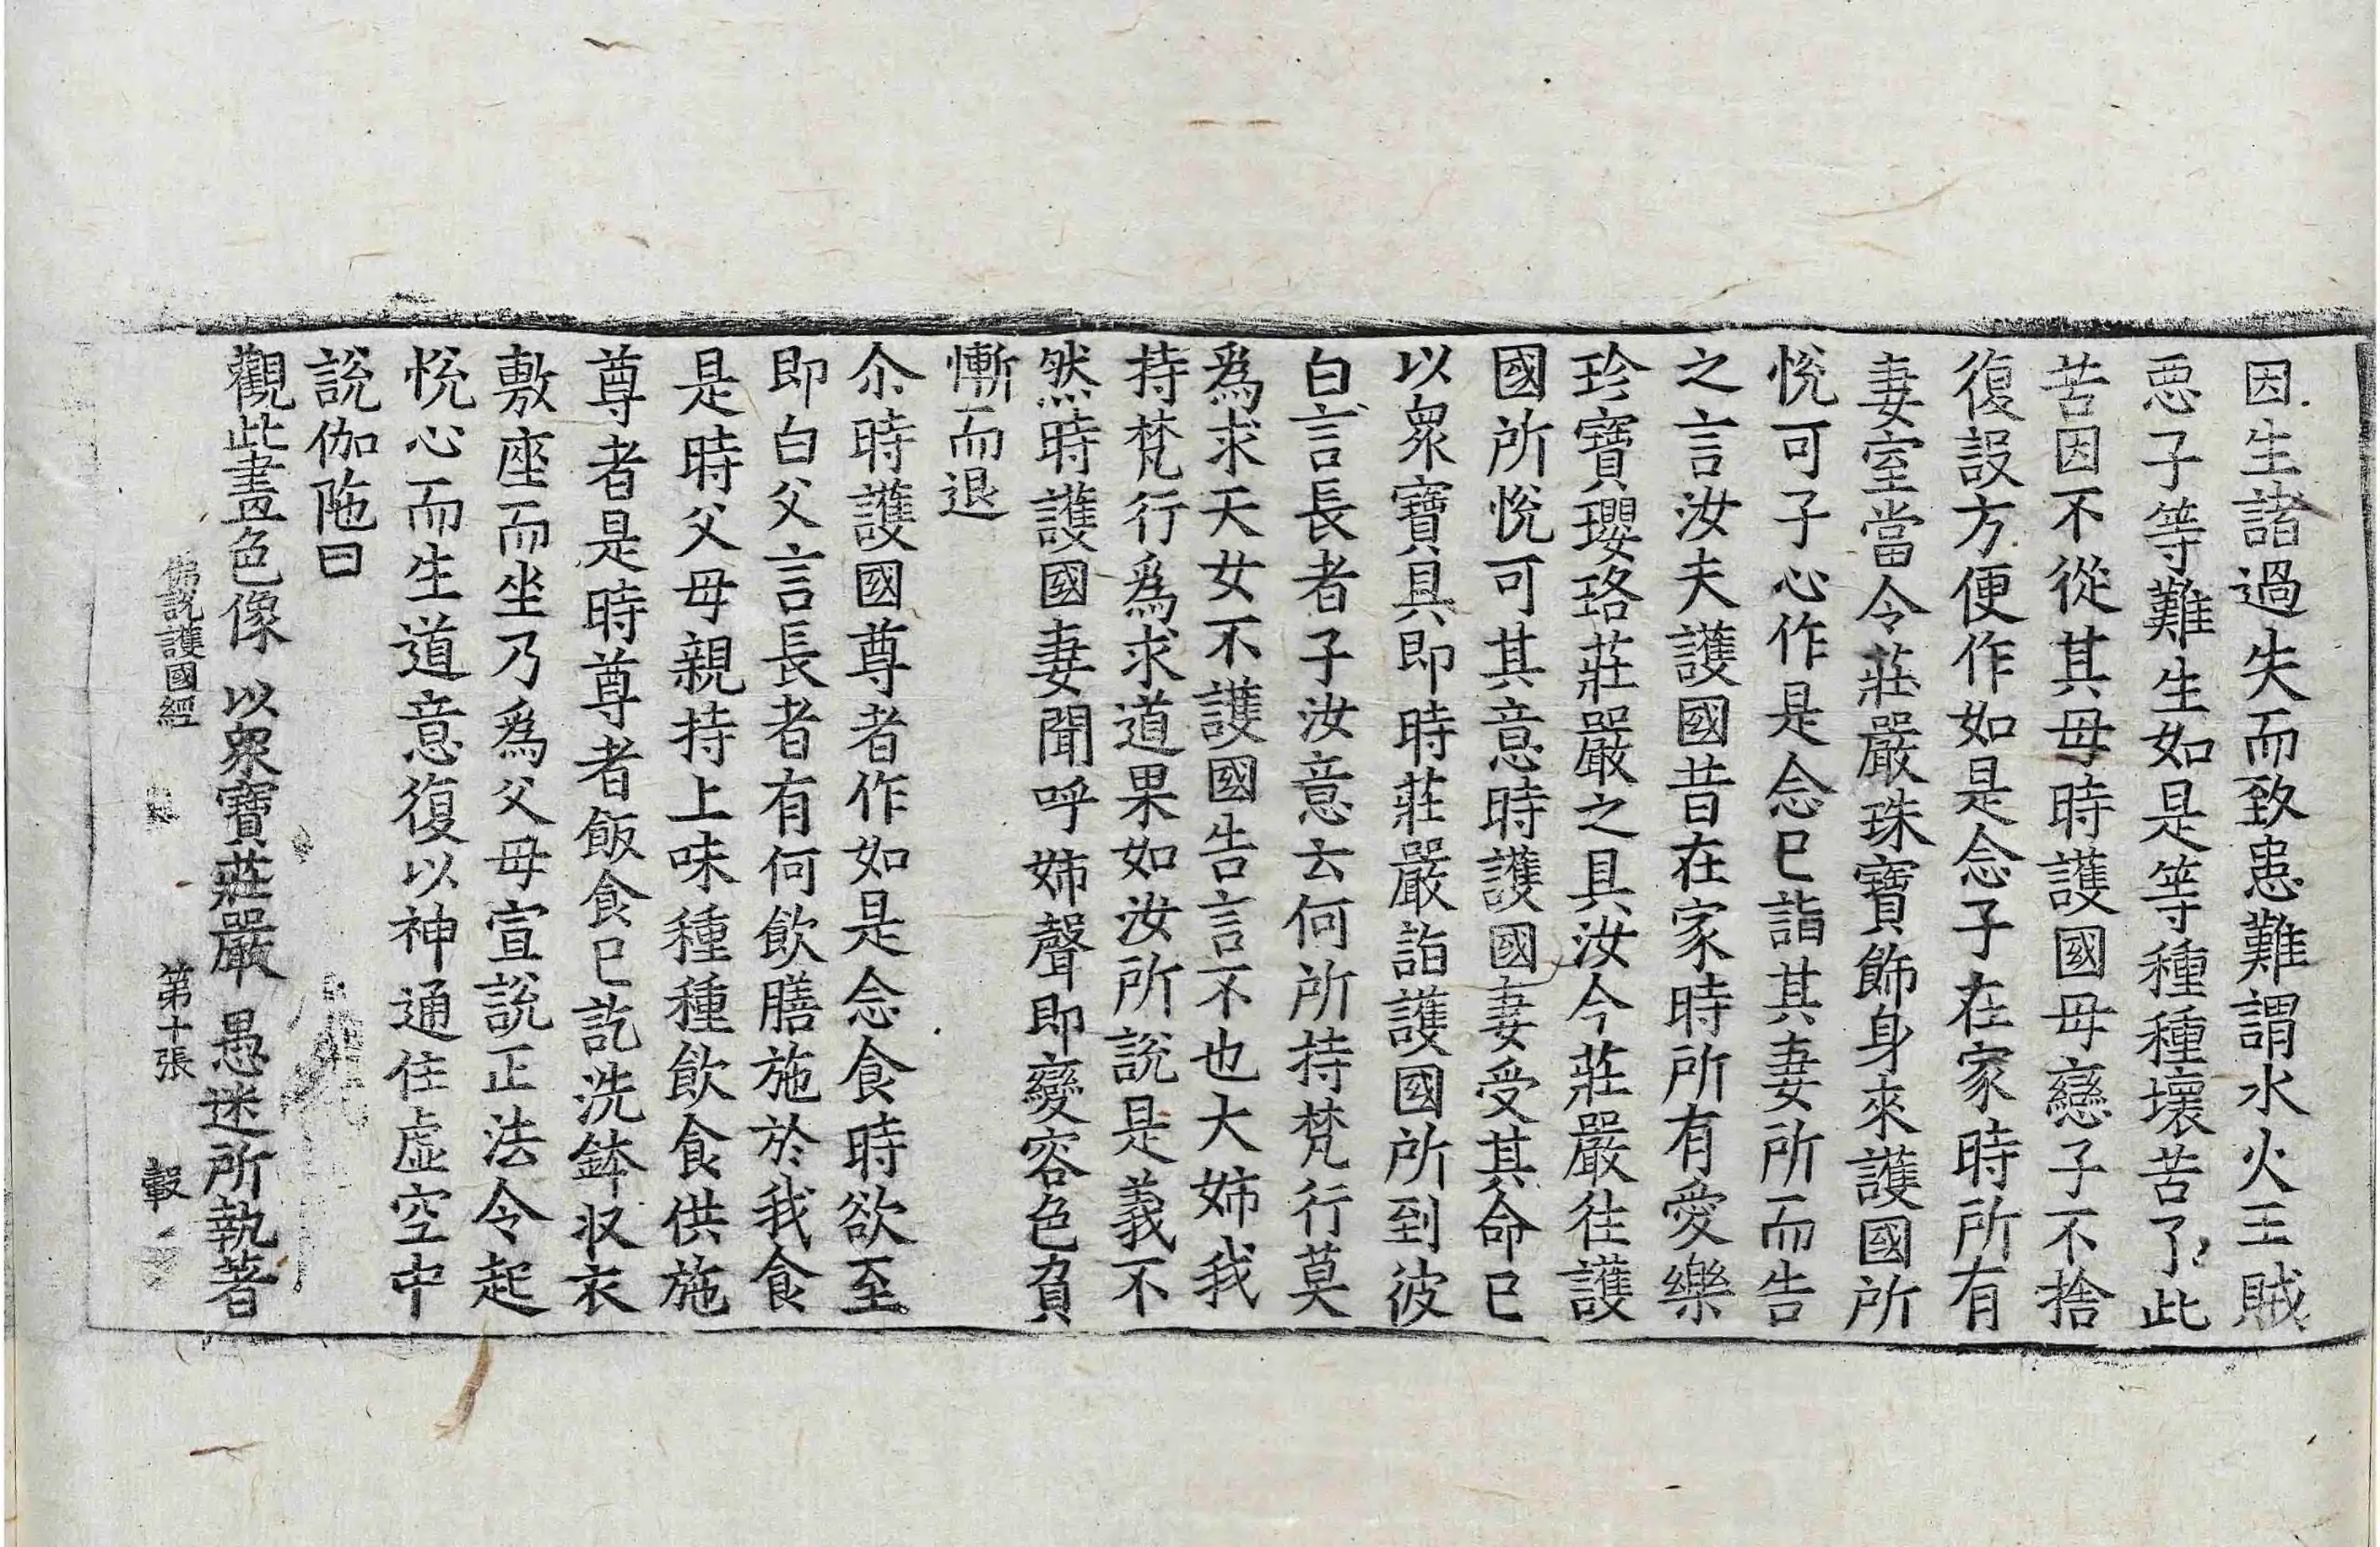 因生諸過失而致患難謂水火王賊
惡子等難生如是等種種壞苦了此
苦因不從其母時護國母戀子不捨
復設方便作如是念子在家時所有
妻室當令莊嚴珠寶飾身來護國所
悅可子心作是念已詣其妻所而告
之言汝夫護國昔在家時所有愛樂
珍寶瓔珞莊嚴之具汝今莊嚴往護
國所悅可其意時護國妻受其命已
以衆寶具即時莊嚴詣護國所到彼
白言長者子汝意云何所持梵行莫
爲求天女不護國告言不也大姊我
持梵行爲求道果如汝所說是義不
然時護國妻聞呼姊聲即變容色負
慚而退
尒時護國尊者作如是念食時欲至
即白父言長者有何飲膳施於我食
是時父母親持上味種種飲食供施
尊者是時尊者飯食已訖洗鉢収衣
敷座而坐乃爲父母宣說正法令起
悅心而生道意復以神通住虛空中
說伽陁曰
觀此畫色像　以衆寶莊嚴　愚迷所執著
佛說護國經　第十張　轂